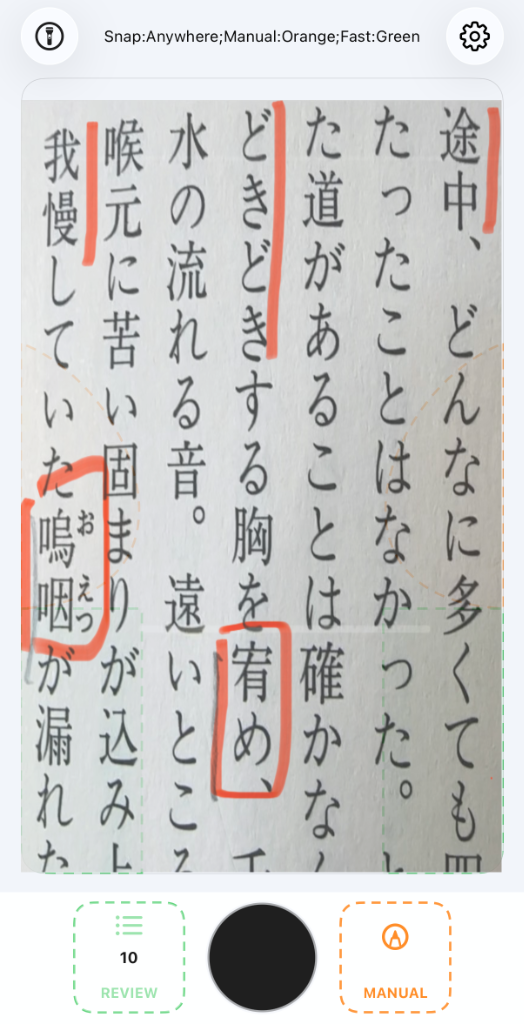 Snap:Anywhere;Manual:Orange;Fast:Green
途中、どんなに多くても
たったことはなかった。
た道があることは確かな
どきどきする胸を宥め、
水の流れる音。遠いとこ
喉元に苦い固まりが込み
我慢していた嗚咽が漏れた
おえつ
10
REVIEW
MANUAL